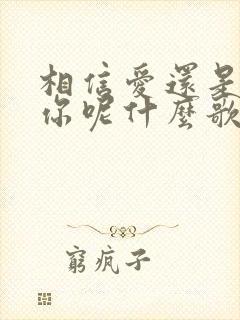 相信愛還是
你呢什麼歌
窮瘋子